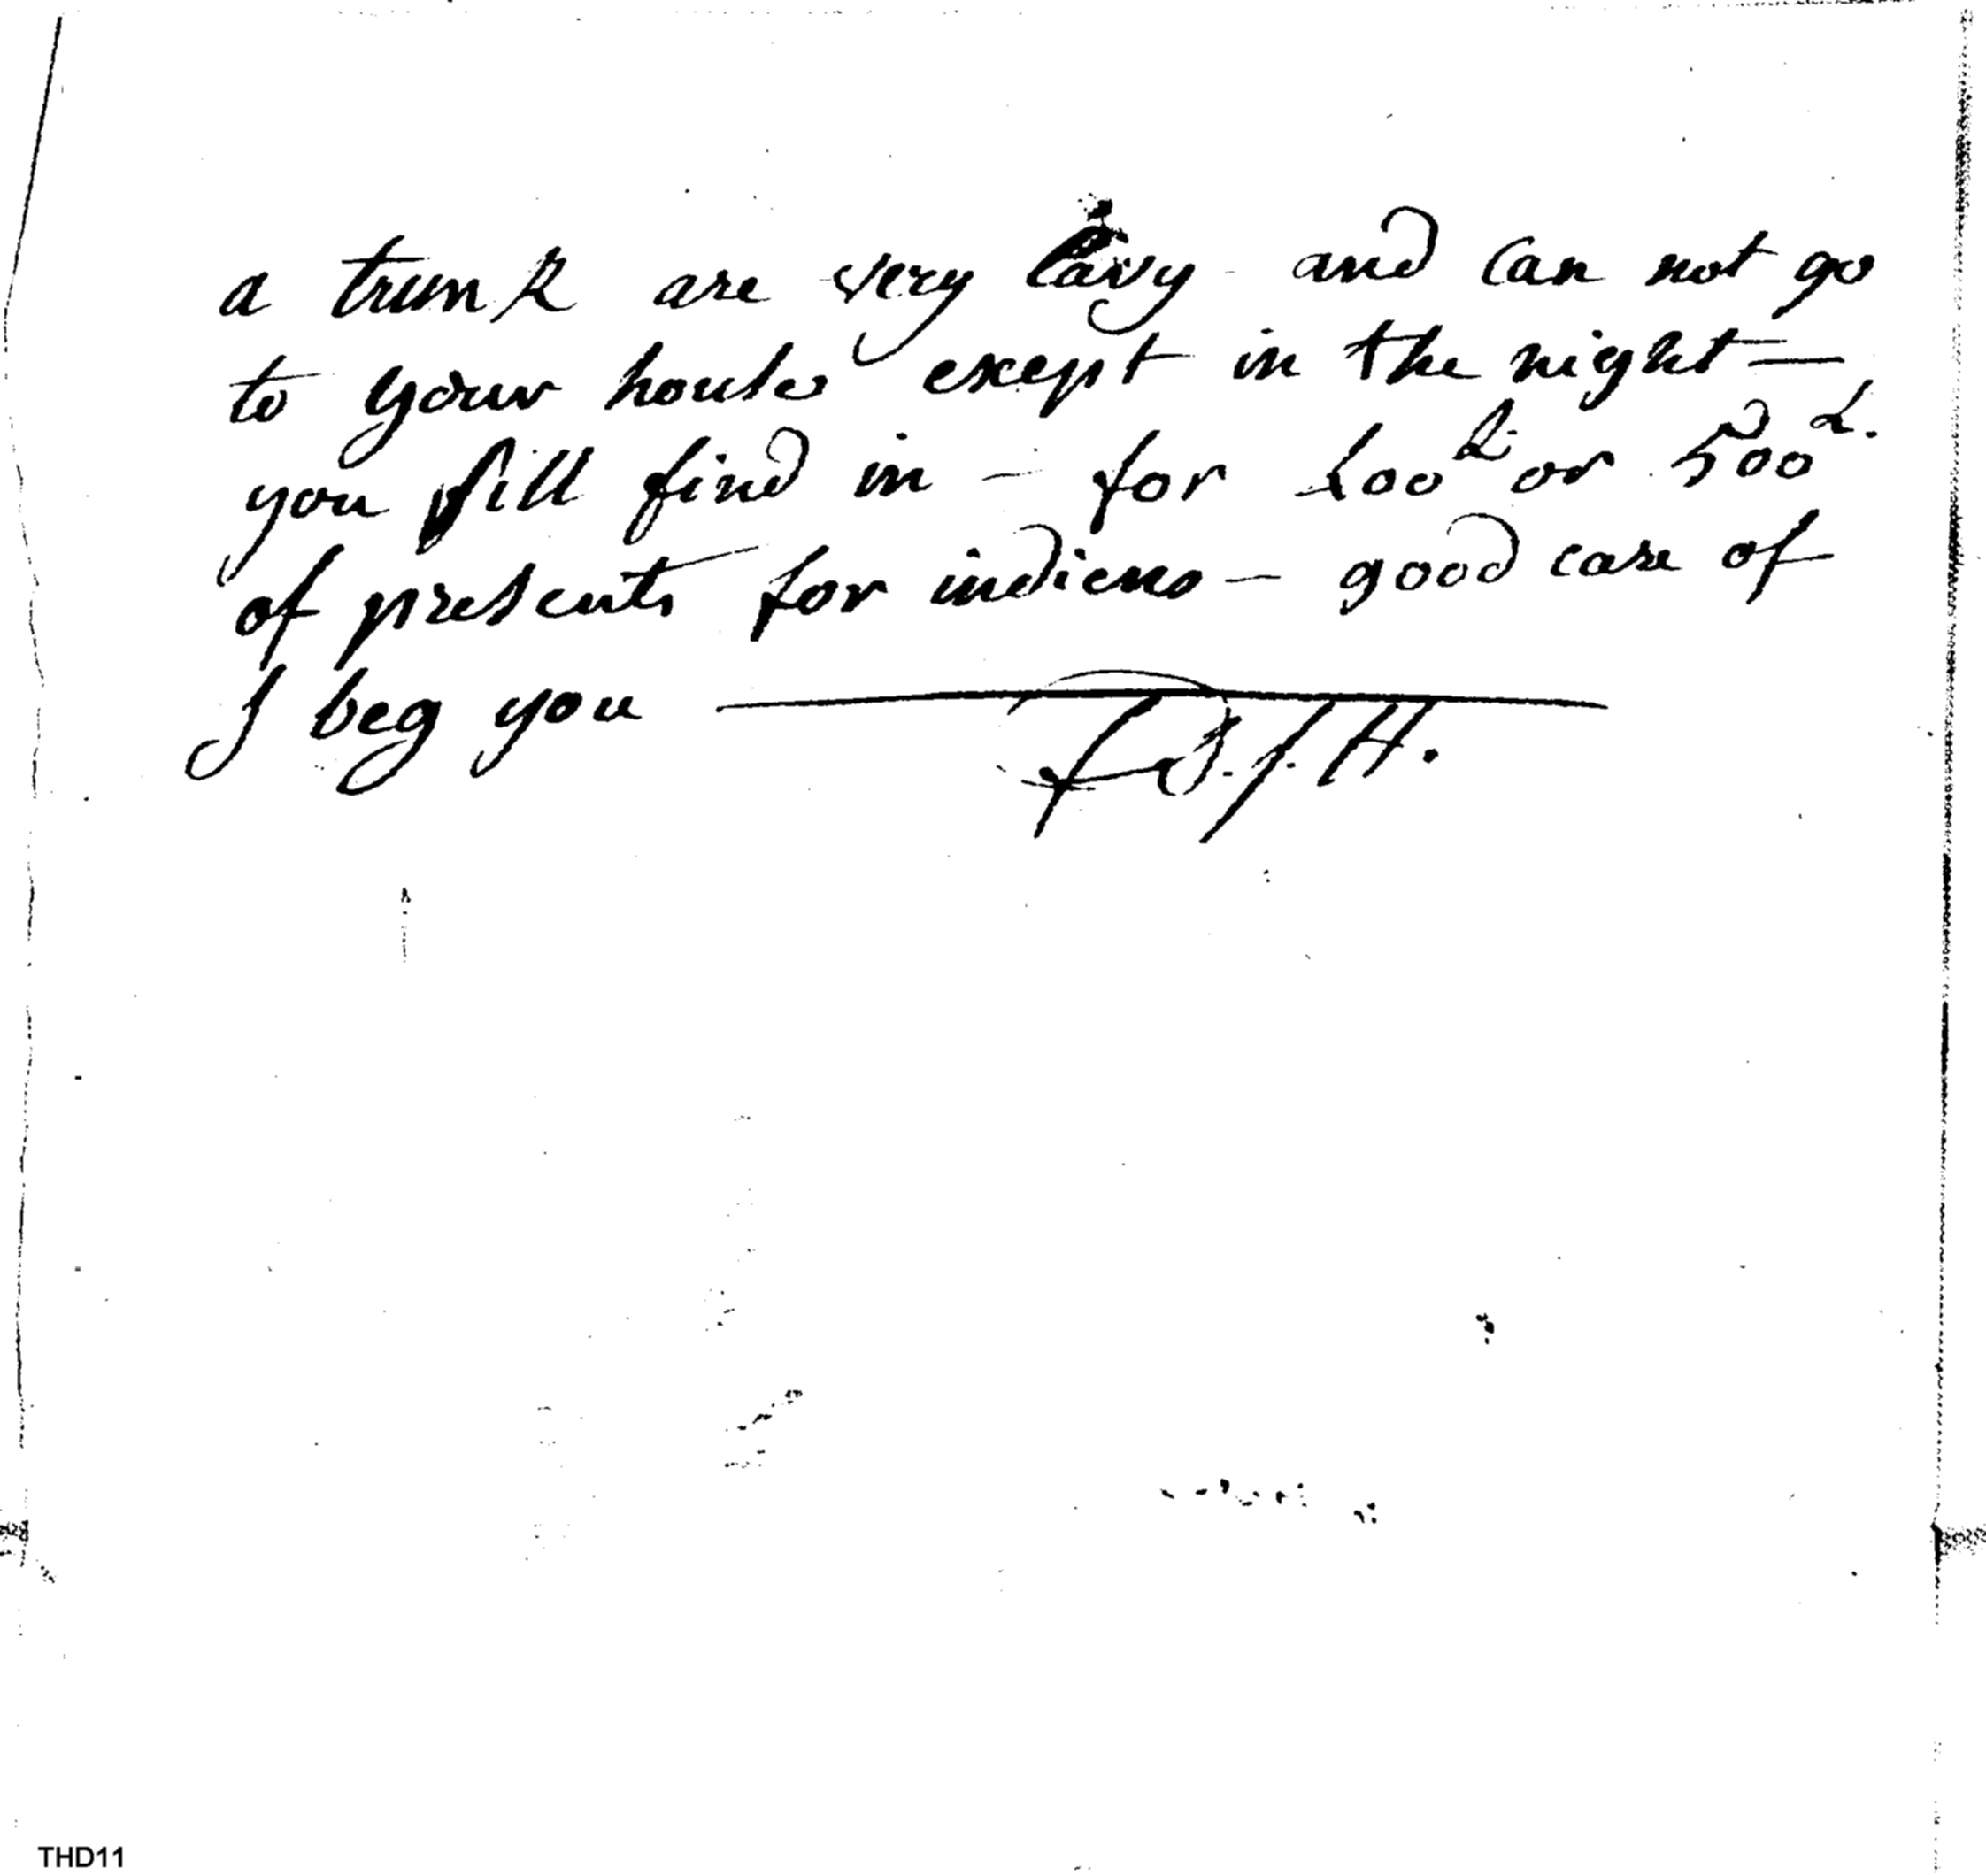 a trunk are very and can not go
to your house exept in the night —
you fill find in — for 400 L. or 500 L.
of presents for indiens — good care of
I beg you ———
J. H.
THD11